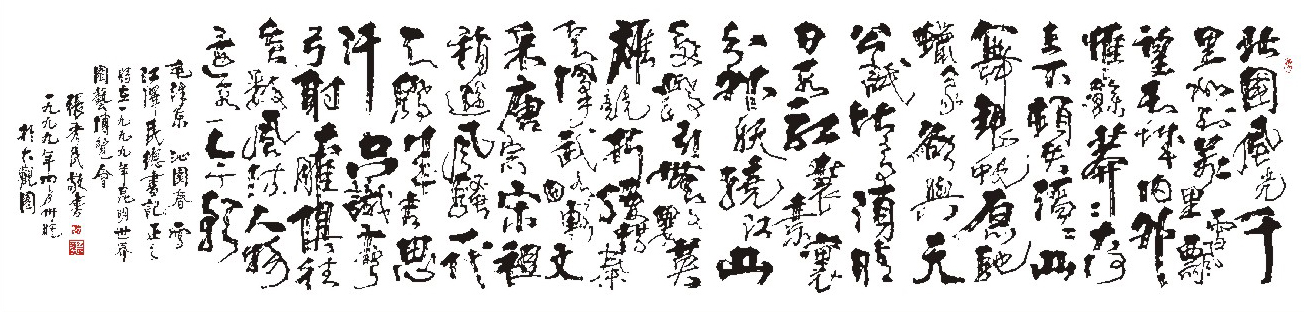 北國風光千
里冰封萬里雪飄
望長城内外
惟餘莽莽大河
上下頓失滔滔山
舞銀蛇原馳
蠟象欲與天
公試比高須晴
日看紅裝素裹
分外妖嬈江山
如此多嬌引無數英
雄競折腰惜秦
皇漢武略輸文
采唐宗宋祖
稍遜風騷一代
天驕成吉思
汗只識彎
弓射大雕俱往
矣數風流人物
還看今朝
毛澤東 沁園春 雪
江澤民總書記正之
時在一九九九年昆明世界
園藝博覽會
張秀民敬書
一九九九年四月卅
於大觀園